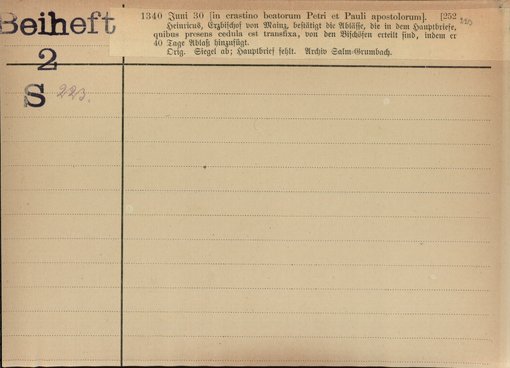 Beiheft
2
S 223.
1340 Juni 30 [in crastino beatorum Petri et Pauli apostolorum]. [252
Heinricus, Erzbischof von Mainz, bestätigt die Ablässe, die in dem Hauptbriefe,
quibus presens cedula est transfixa, von den Bischöfen erteilt sind, indem er
40 Tage Ablaß hinzufügt.
Orig. Siegel ab; Hauptbrief fehlt. Archiv Salm-Grumbach.